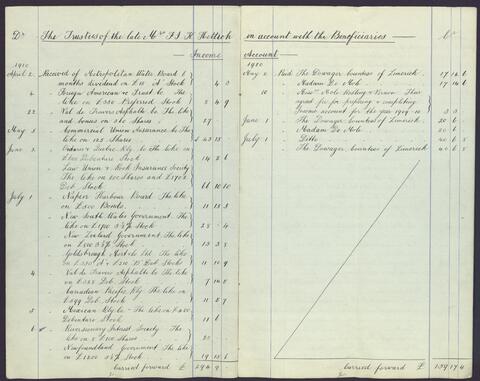 Dr The Trustees of the late Mrs F. J. K.
in account with the Beneficiaries Cr
Income
Account
1910
April 2 Received of Metropolitan Water Board 6
months dividend on £10 A Stock 4 3
4 Foreign American & Trust Co The
like on £ Preferred Stock 2 4 9
22 Val de Travers Asphalte Co The like
and bonus on 216 Shares 27
May 3 Commercial Union Assurance Co The
like on 125 Shares 43 15
June 2 Ontario & Quebec Rly Co The like on
Debenture Stock 14 2 6
Law Union & Rock Insurance Society
The like on 200 Shares and
Deb. Stock 66 10 10
July 1 Napier Harbour Board The like
on £500 Bonds 11 15 3
New South Wales Government The
like on £1700 3½% Stock 28 4
New Zealand Government The like
on 3½% Stock 13 3 8
Goldsbrough Mort & Co Ltd The like
on A & B Deb Stock 11 11 9
4 Val de Travers Asphalte Co The like
on Deb. Stock 7 14 8
Canadian Pacific Rly The like on
Deb. Stock 11 5 7
5 Mexican Rly Co The like on £200
Debenture Stock 11 6
6 Reversionary Interest Society The
like on £100 Shares 20
Newfoundland Government The like
on £1200 3½% Stock 19 15 6
Carried forward £ 294 9
1910
May 2 Paid The Dowager Countess of Limerick 17 14 6
Madam De Nolo 17 14 6
10
agreed fee for preparing & completing
Income account for the year 1909-10 3 3
June 1 The Dowager Countess of Limerick 20 6
Madam De Nolo 20 6
July 1 Ditto 20 6 8
The Dowager Countess of Limerick 40 6 8
Carried forward £ 139 17 4